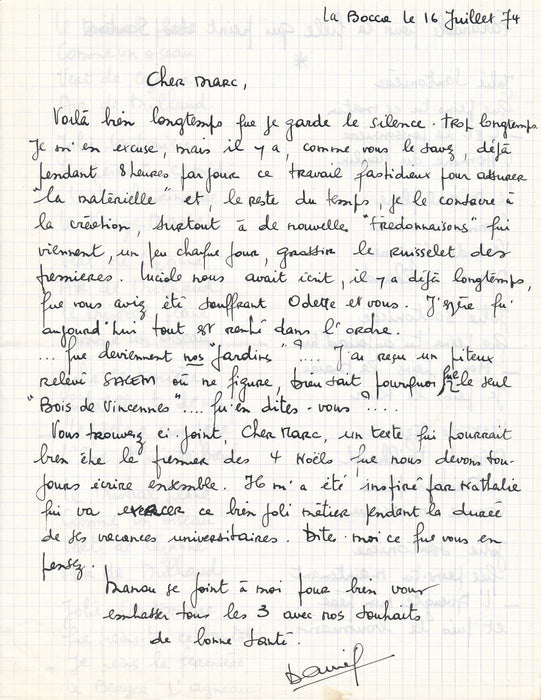 La Bocca le 16 Juillet 74
Cher Marc,
Voilà bien longtemps que je garde le silence. Trop longtemps.
Je m'en excuse, mais il y a, comme vous le savez, déjà
pendant 8 heures par jour ce travail fastidieux pour assurer
"la matérielle" et, le reste du temps, je le consacre à
la création, surtout à de nouvelles "Fredonnaisons" qui
viennent, un peu chaque jour, grossir le ruisselet des
premières. Luciole nous avait écrit, il y a déjà longtemps,
que vous aviez été souffrant Odette et vous. J'espère qu'
aujourd'hui tout est rentré dans l'ordre.
... que deviennent nos "Jardins" ?.... J'ai reçu un piteux
relevé SACEM où ne figure, bien sait pourquoi que le seul
"Bois de Vincennes".... qu'en dites-vous ?....
Vous trouverez ci-joint, Cher Marc, un texte qui pourrait
bien être le premier des 4 Noëls que nous devons tou-
jours écrire ensemble. Il m'a été inspiré par Nathalie
qui va exercer ce bien joli métier pendant la durée
de ses vacances universitaires. Dites-moi ce que vous en
pensez.
Manou se joint à moi pour bien vous
embrasser tous les 3 avec nos souhaits
de bonne santé.
Daniel